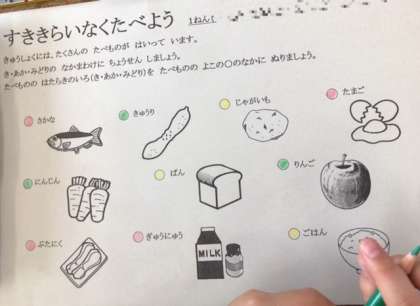 すききらいなくたべよう 1ねん
きゅうしょくには、たくさんの たべものが はいって います。
き・あか・みどりの なかまわけに ちょうせん しましょう。
たべものの はたらきのいろ(き・あか・みどり)を たべものの よこの○のなかに ぬりましょう。
さかな
きゅうり
じゃがいも
たまご
にんじん
ぱん
りんご
ぶたにく
ぎゅうにゅう
MILK
ごはん